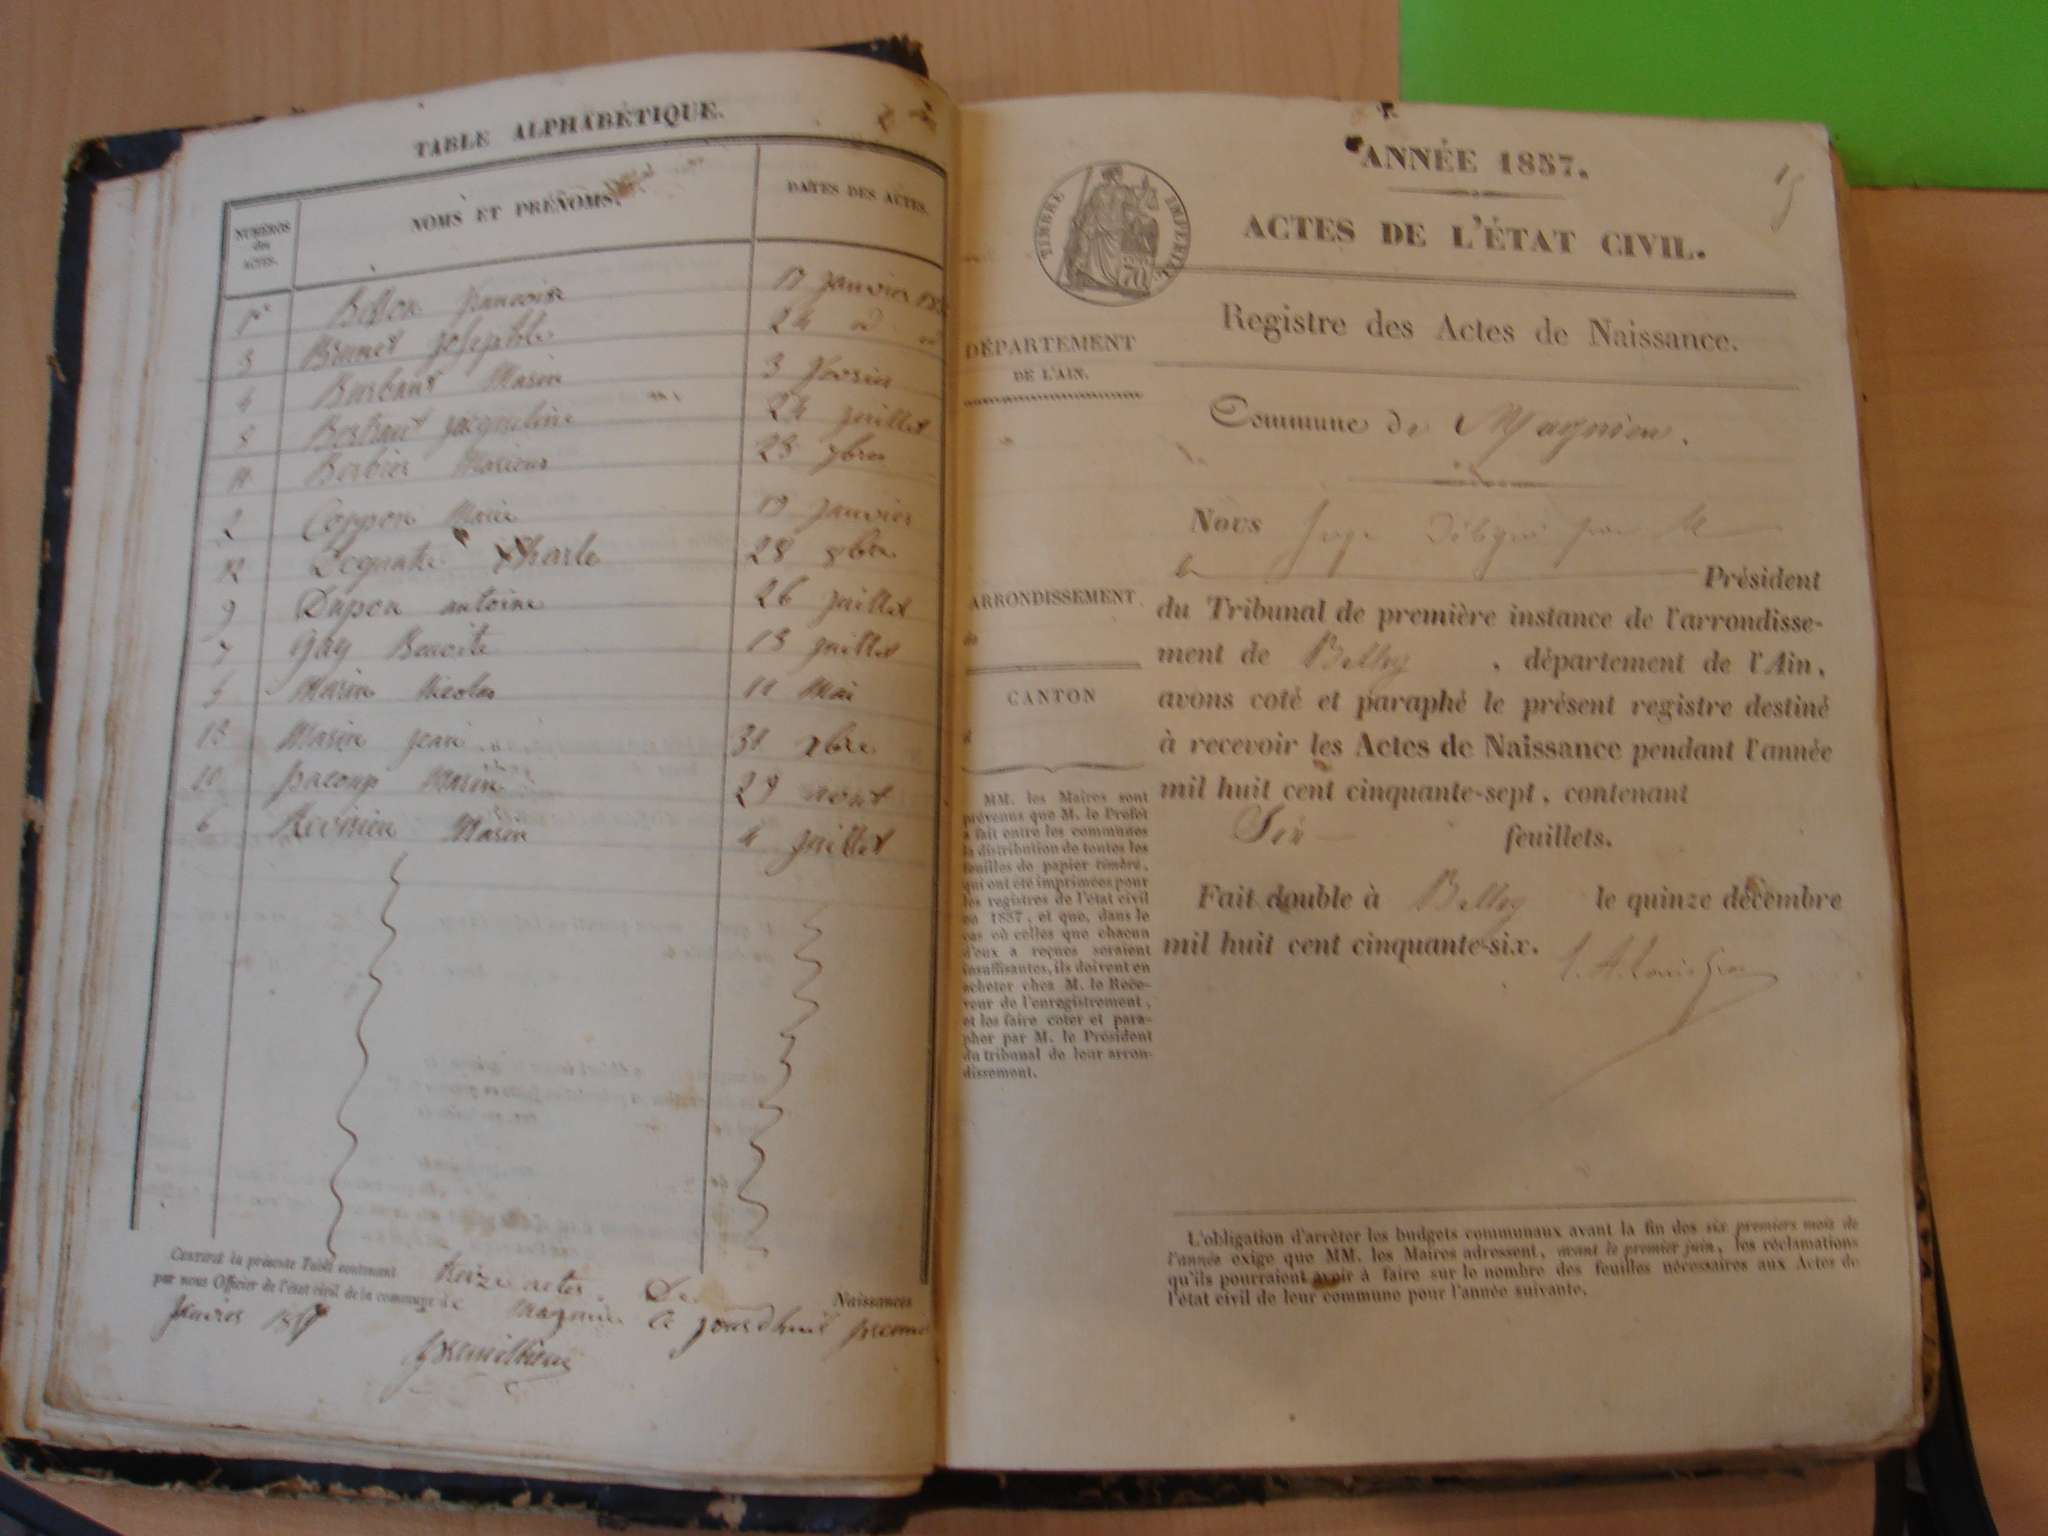 TABLE ALPHABÉTIQUE.
NUMÉROS
des
ACTES.
NOMS ET PRÉNOMS.
DATES DES ACTES.
1er Billon Francoise 17 janvier
3 Brunet Josephte 24 d
4 Barbaut Marie 3 fevrier
8 Berbaut Jacqueline 24 juillet
11 Berbier 23 7bre
2 Coppon Marie 19 janvier
12 Charle 28 8bre
9 Dupon antoine 26 juillet
7 Gay Benoite 13 juillet
5 Marin Nicolas 11 Mai
13 Marin jean 31 xbre
10 29 aout
6 4 juillet
Certifié la présente Table contenant actes. De Naissances
par nous Officier de l'état civil de la commune de a jourdhuit premier
janvier
ANNÉE 1857.
15
ACTES DE L'ÉTAT CIVIL.
TIMBRE IMPERIAL
70
Registre des Actes de Naissance.
DÉPARTEMENT
DE L'AIN.
Commune de Magnieu.
Nous juge délégué par M
le Président
du Tribunal de première instance de l'arrondisse-
ment de Belley, département de l'Ain,
avons coté et paraphé le présent registre destiné
à recevoir les Actes de Naissance pendant l'année
mil huit cent cinquante-sept, contenant
Six feuillets.
Fait double à Belley le quinze décembre
mil huit cent cinquante-six.
ARRONDISSEMENT
de
CANTON
d
MM. les Maires sont
prévenus que M. le Préfet
a fait entre les communes
la distribution de toutes les
feuilles de papier timbré,
qui ont été imprimées pour
les registres de l'état civil
en 1857, et que, dans le
cas où celles que chacun
d'eux a reçues seraient
insuffisantes, ils doivent en
acheter chez M. le Rece-
veur de l'enregistrement,
et les faire coter et para-
pher par M. le Président
du tribunal de leur arron-
dissement.
L'obligation d'arrêter les budgets communaux avant la fin des six premiers mois de
l'année exige que MM. les Maires adressent, avant le premier juin, les réclamations
qu'ils pourraient avoir à faire sur le nombre des feuilles nécessaires aux Actes de
l'état civil de leur commune pour l'année suivante.